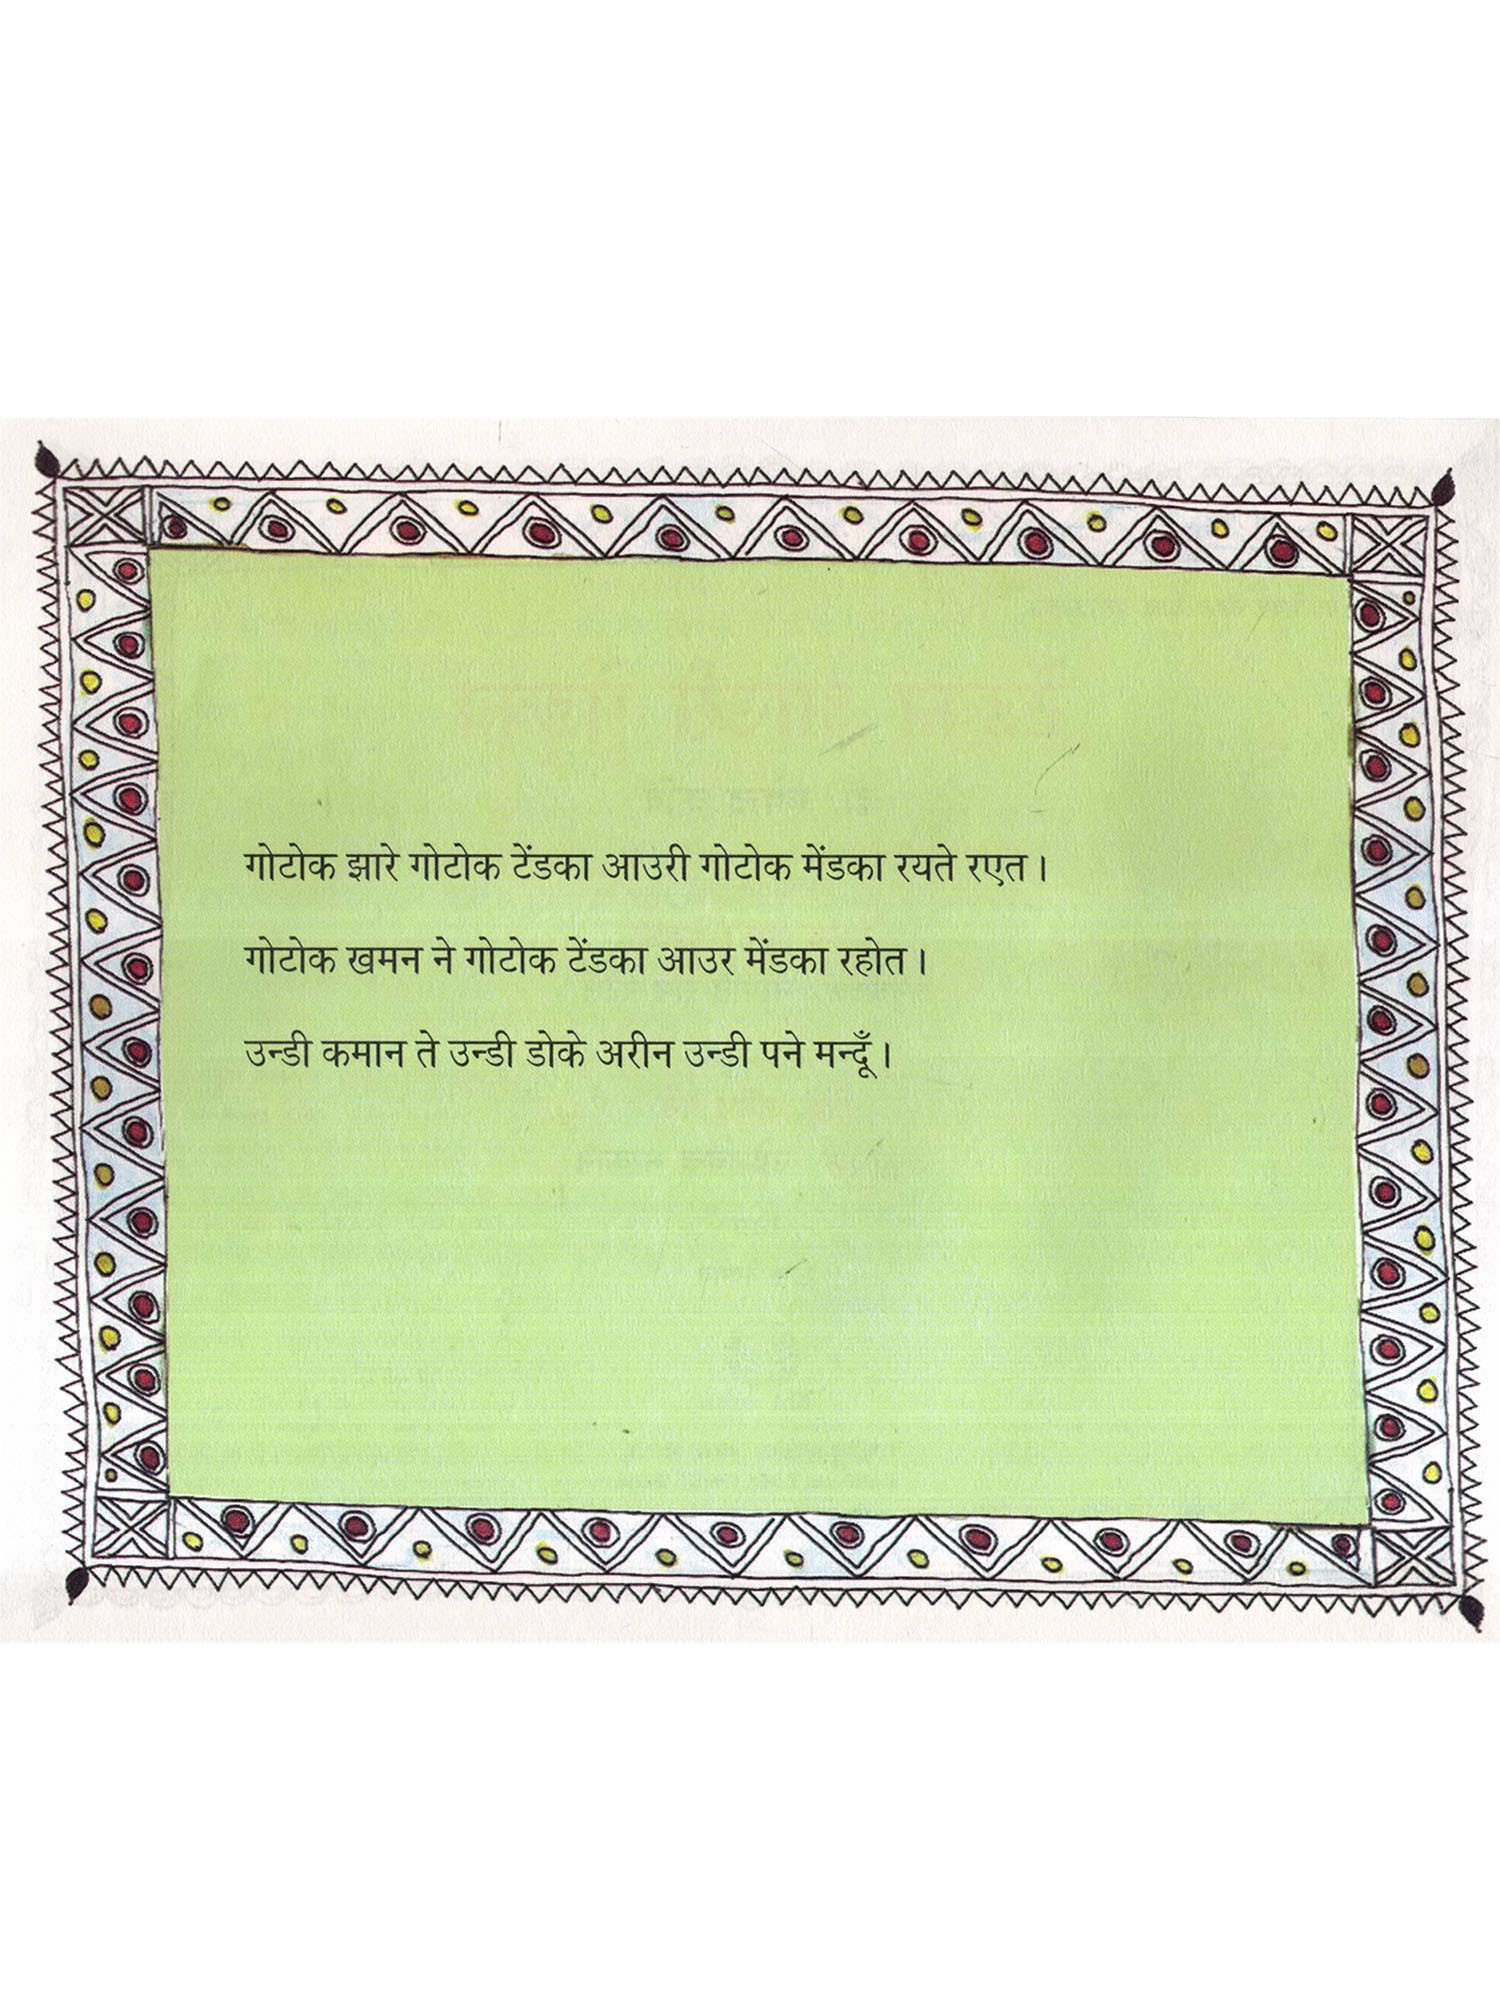 गोटोक झारे गोटोक टेंडका आउरी गोटोक मेंडका रयते रएत।
गोटोक खमन ने गोटोक टेंडका आउर मेंडका रहोत।
उन्डी कमान ते उन्डी डोके अरीन उन्डी पने मन्दूँ।